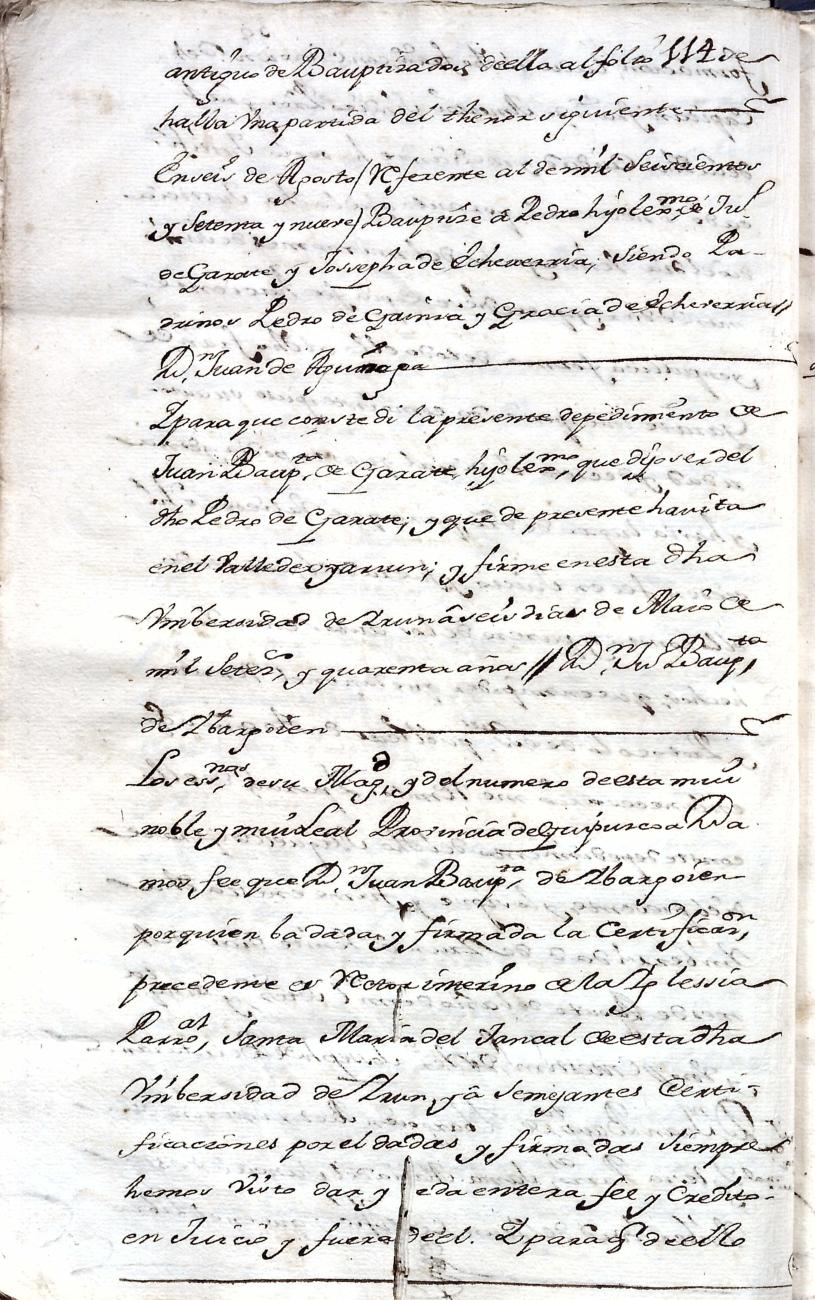 antiguo de Baupuzados de ella al folio 114 se
halla Vna partida del thenor siguiente
En seis de Agosto (Referente al de mil Seiscientos
y Setenta y nueve) Baupuze a Pedro hijo lexmo, de Jul.
de Garate y Jossepha de Echeverria, siendo Pa-
drinos Pedro de Gainza y Gracia de Echeverria //
Dn. Juan de Aguinaga
Y para que conste di la presente de pedimento de
Juan Bapta, de Garate, hijo lexmo, que dijo ser del
dho Pedro de Garate; y que de presente havita
en el Valle de oyarzun; y firme en esta dha
Vnibersidad de Yrun â seis dias de Maio de
mil Seteos, y quarenta años // Dn. Ju. Baupta,
de Ybargoien
Los essnos, de su Magd, y del numero de esta mui
noble y mui Leal Provincia de Guipuzcoa Da
mos fee que Dn. Juan Baupta, de Ybargoien
por quien ba dada y firmada la Certificon,
precedente es Rector interino de la Yglessia
Parroal, Santa Maria del Juncal de esta dha
Vnibersidad de Yrun, y â semejantes Certi-
ficaciones por el dadas y firmadas Siempre
hemos Visto dar y se da entera fee y Credito
en Juicio y fuera de el. Y para q de ello